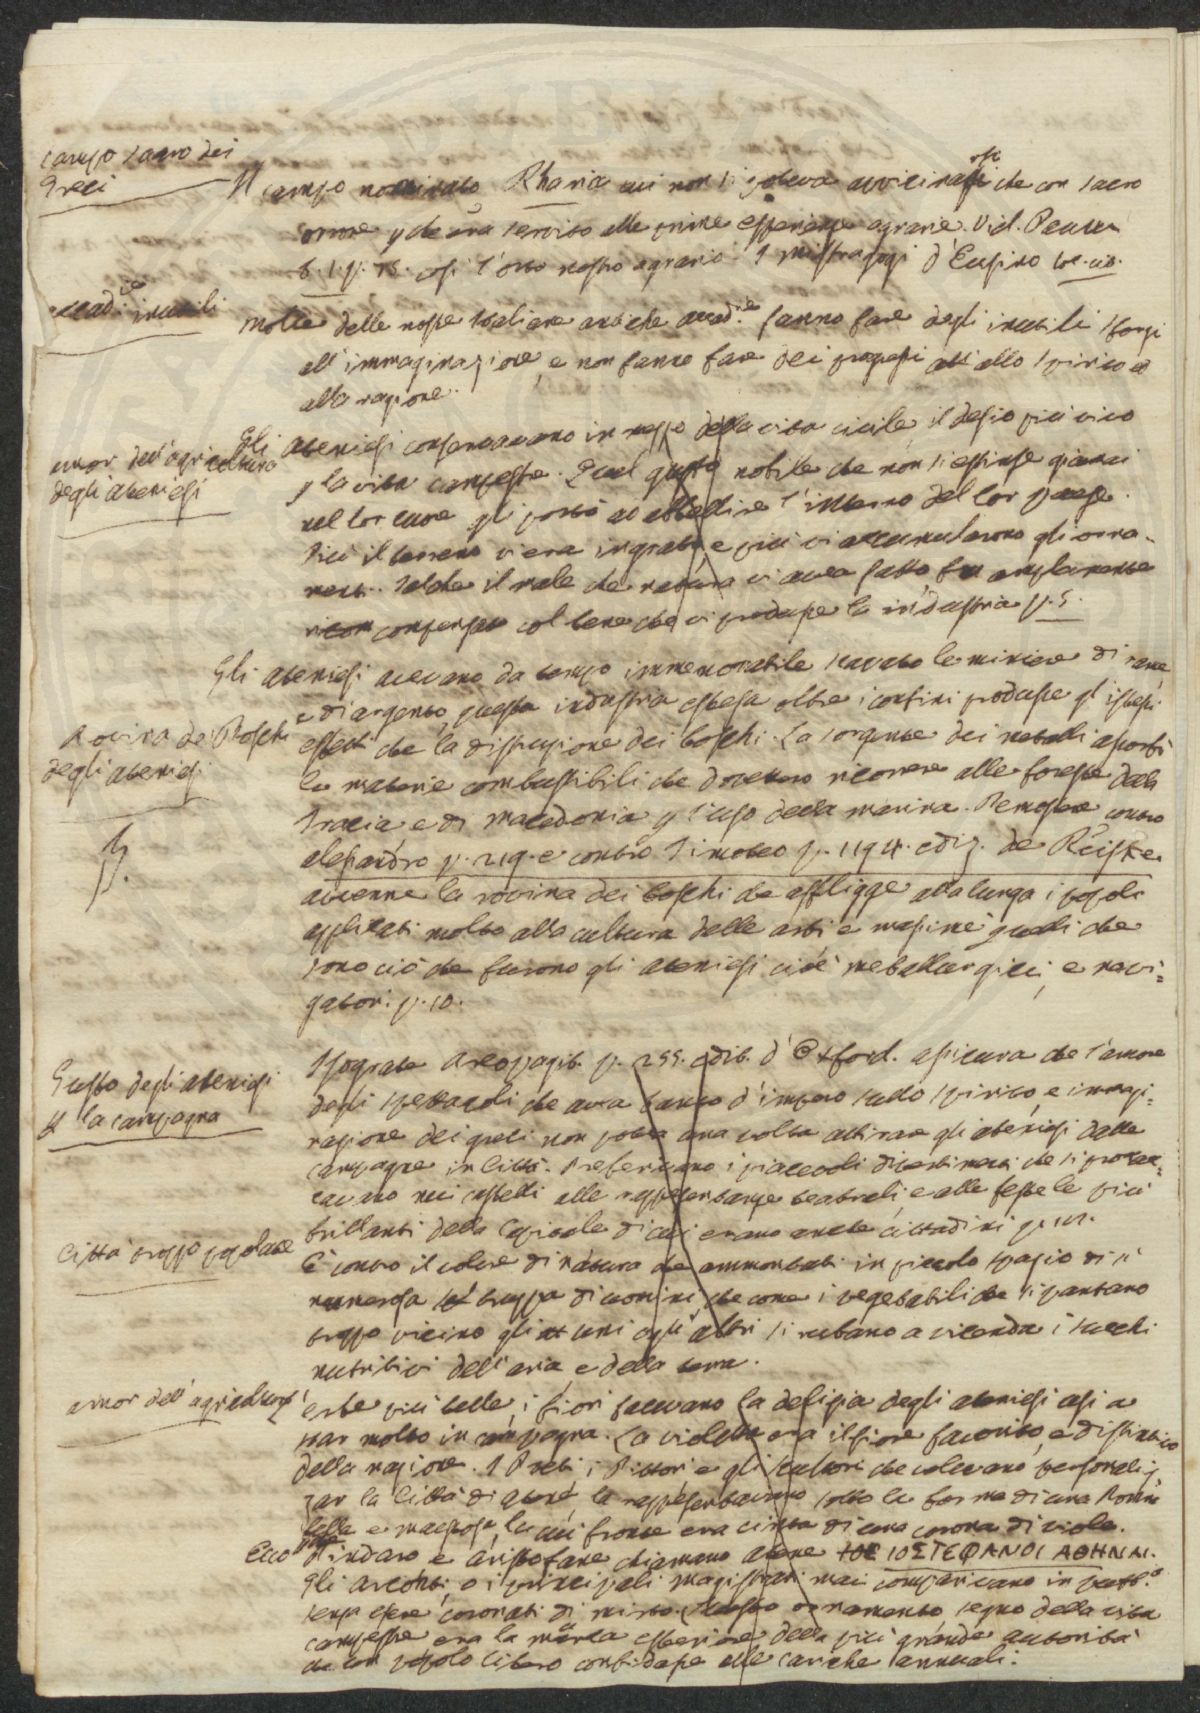 campo sacro dei
Greci
Il campo nominato Rharia cui non si poteva avvicinarsi che con sacro
orrore p che era servito alle prime esperienze agrarie. Vid. Pausan
8. 1. p. 78. così l'orto nostro agrario. I Mistagogi d'Eusino loc. cit.
accad.ie inutili
Molte delle nostre Italiane antiche accad.ie fanno fare degli inutili sforzi
all'immaginazione, e non fanno fare dei progressi allo spirito ed
alla ragione.
amor dell'agricoltura
degli ateniesi
Gli Ateniesi conservavano in mezzo della vita civile il desio più vivo
p la vita campestre. Quel gusto nobile che non si estinse giamai
nel lor cuore gli portò ad abbellire l'interno del lor paese.
Più il terreno v'era ingrato, e più vi accumularono gli orna-
menti. Talche il male che natura vi avea fatto fu ampiamente
compensato col bene che vi produsse la industria p. 5.
Rovina de Boschi
degli ateniesi
Gli ateniesi avevano da tempo immemorabile scavato le miniere di rame
e di argento, questa industria estesa oltre i confini produsse gl'istessi
effetti che la distruzione dei boschi. La sorgente dei metalli assorbì
le materie combustibili che dovettero ricorrere alle foreste della
Tracia e di Macedonia p l'uso della marina. Demostene contro
alessandro p. 219. e contro Timoteo p. 1194. ediz. de Reiske
avvenne la rovina dei boschi che affligge alla lunga i popoli
applicati molto alla cultura delle arti e massime quelli che
sono ciò che furono gli ateniesi cioè metallurgici, e navi=
gatori. p. 10.
Gusto degli ateniesi
p la campagna
Isocrate Areopagit. p. 255. edit. d'Oxford. assicura che l'amore
degli spettacoli che avea tanto d'impero sullo spirito, e immagi=
nazione dei greci non potea una volta attirare gli ateniesi dalle
campagne in Città. Preferivano i piacevoli divertimenti che si procac=
ciavano nei castelli alle rappresentanze teatrali, e alle feste le più
brillanti della Capitale di cui erano anche cittadini p. 17.
Città troppo popolate
È contro il volere di natura che ammontati in piccolo spazio di sì
numerosa truppa di uomini che come i vegetabili che si piantano
troppo vicino gli uni agli altri si rubano a vicenda i succhi
nutritivi dell'aria, e della terra.
amor dell'agricoltura
erbe più belle, i fiori facevano la delizia degli ateniesi assi a
star molto in campagna. La violetta era il fiore favorito, e distintivo
della nazione. I Poeti, i Pittori e gli scultori che volevano personaliz-
zar la Città di atene la rappresentavano sotto la forma di una Donna
bella e maestosa, la cui fronte era cinta di una corona di viole.
Ecco Pindaro e Aristofane chiamano atene ΙΟΣΤΕΦΑΝΟΙ ΑΘΗΝΑΙ.
Gli arconti, o i principali magistrati mai comparivano in pubb.o
senza essere coronati di mirto. Questo ornamento, segno della vita
campestre era la marca esteriore della più grande autorità
che un popolo libero confidasse alle cariche annuali.